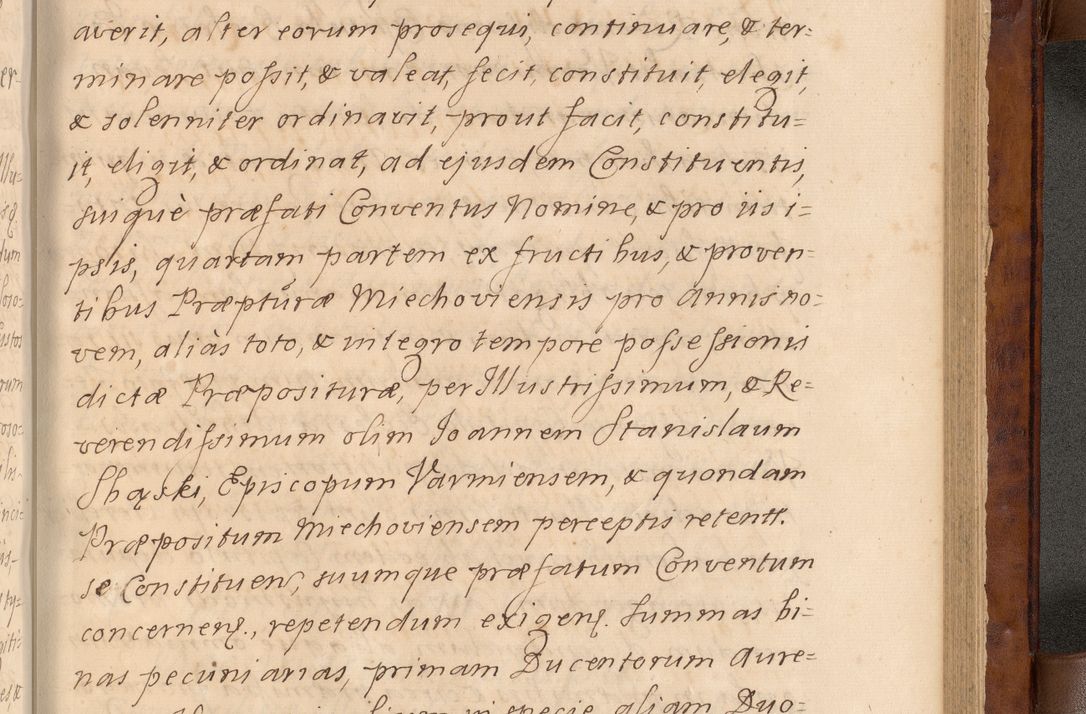 averit, alter eorum prosequi, continuare, & ter=
minare possit, & valeat, fecit, constituit, elegit,
& solenniter ordinavit, prout facit, constitu=
it, eligit, & ordinat, ad ejusdem Constituentis,
suiquè præfati Conventus Nomine, & pro iis i=
psis, quartam partem ex fructibus, & proven=
tibus Præpturæ Miechoviensis pro Annis no=
vem, aliàs toto, & integro tempore possessionis
dictæ Præpositura, per Illustrissimum, & Re=
verendissimum olim Joannem Stanislaum
Sbąski, Episcopum Varmiensem, & quondam
Præpositum Miechoviensem perceptis retentt.
se Constituen, suumque præfatum Conventum
concernen., repetendum exigen. summas bi=
nas pecuniarias, primam Ducentorum Aure=
in specie, aliam Duo=